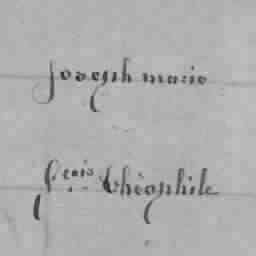 Joseph marie
f.cois Théophile